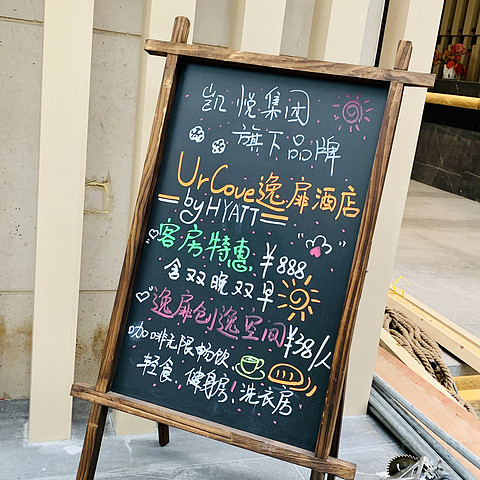 凯悦集团
旗下品牌
UrCove逸扉酒店
by HYATT
客房特惠 ¥888
含双晚双早
逸扉创逸空间¥38/人
咖啡无限畅饮
轻食.健身房!洗衣居